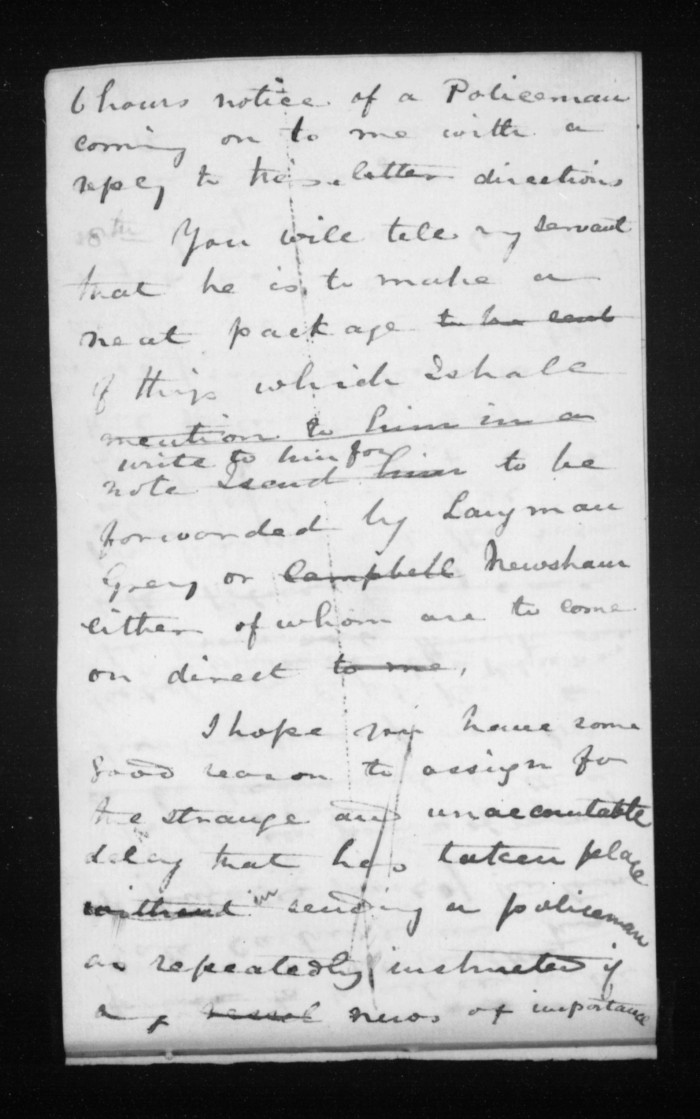 6 hours notice of a Policeman
coming on to me with a
reply to this letter directions
You will tell my servant
that he is to make a
neat package to be sent
of things which I shall
mention to him in a
write to him for
note I send him to be
forwarded by Langman
Grey or Campbell Newsham
either of whom are to come
on direct to me,
I hope you have some
good reason to assign for
the strange and unaccountable
delay that has taken place
without in sending a policeman
as repeatedly instructed if
any vessel news of importance